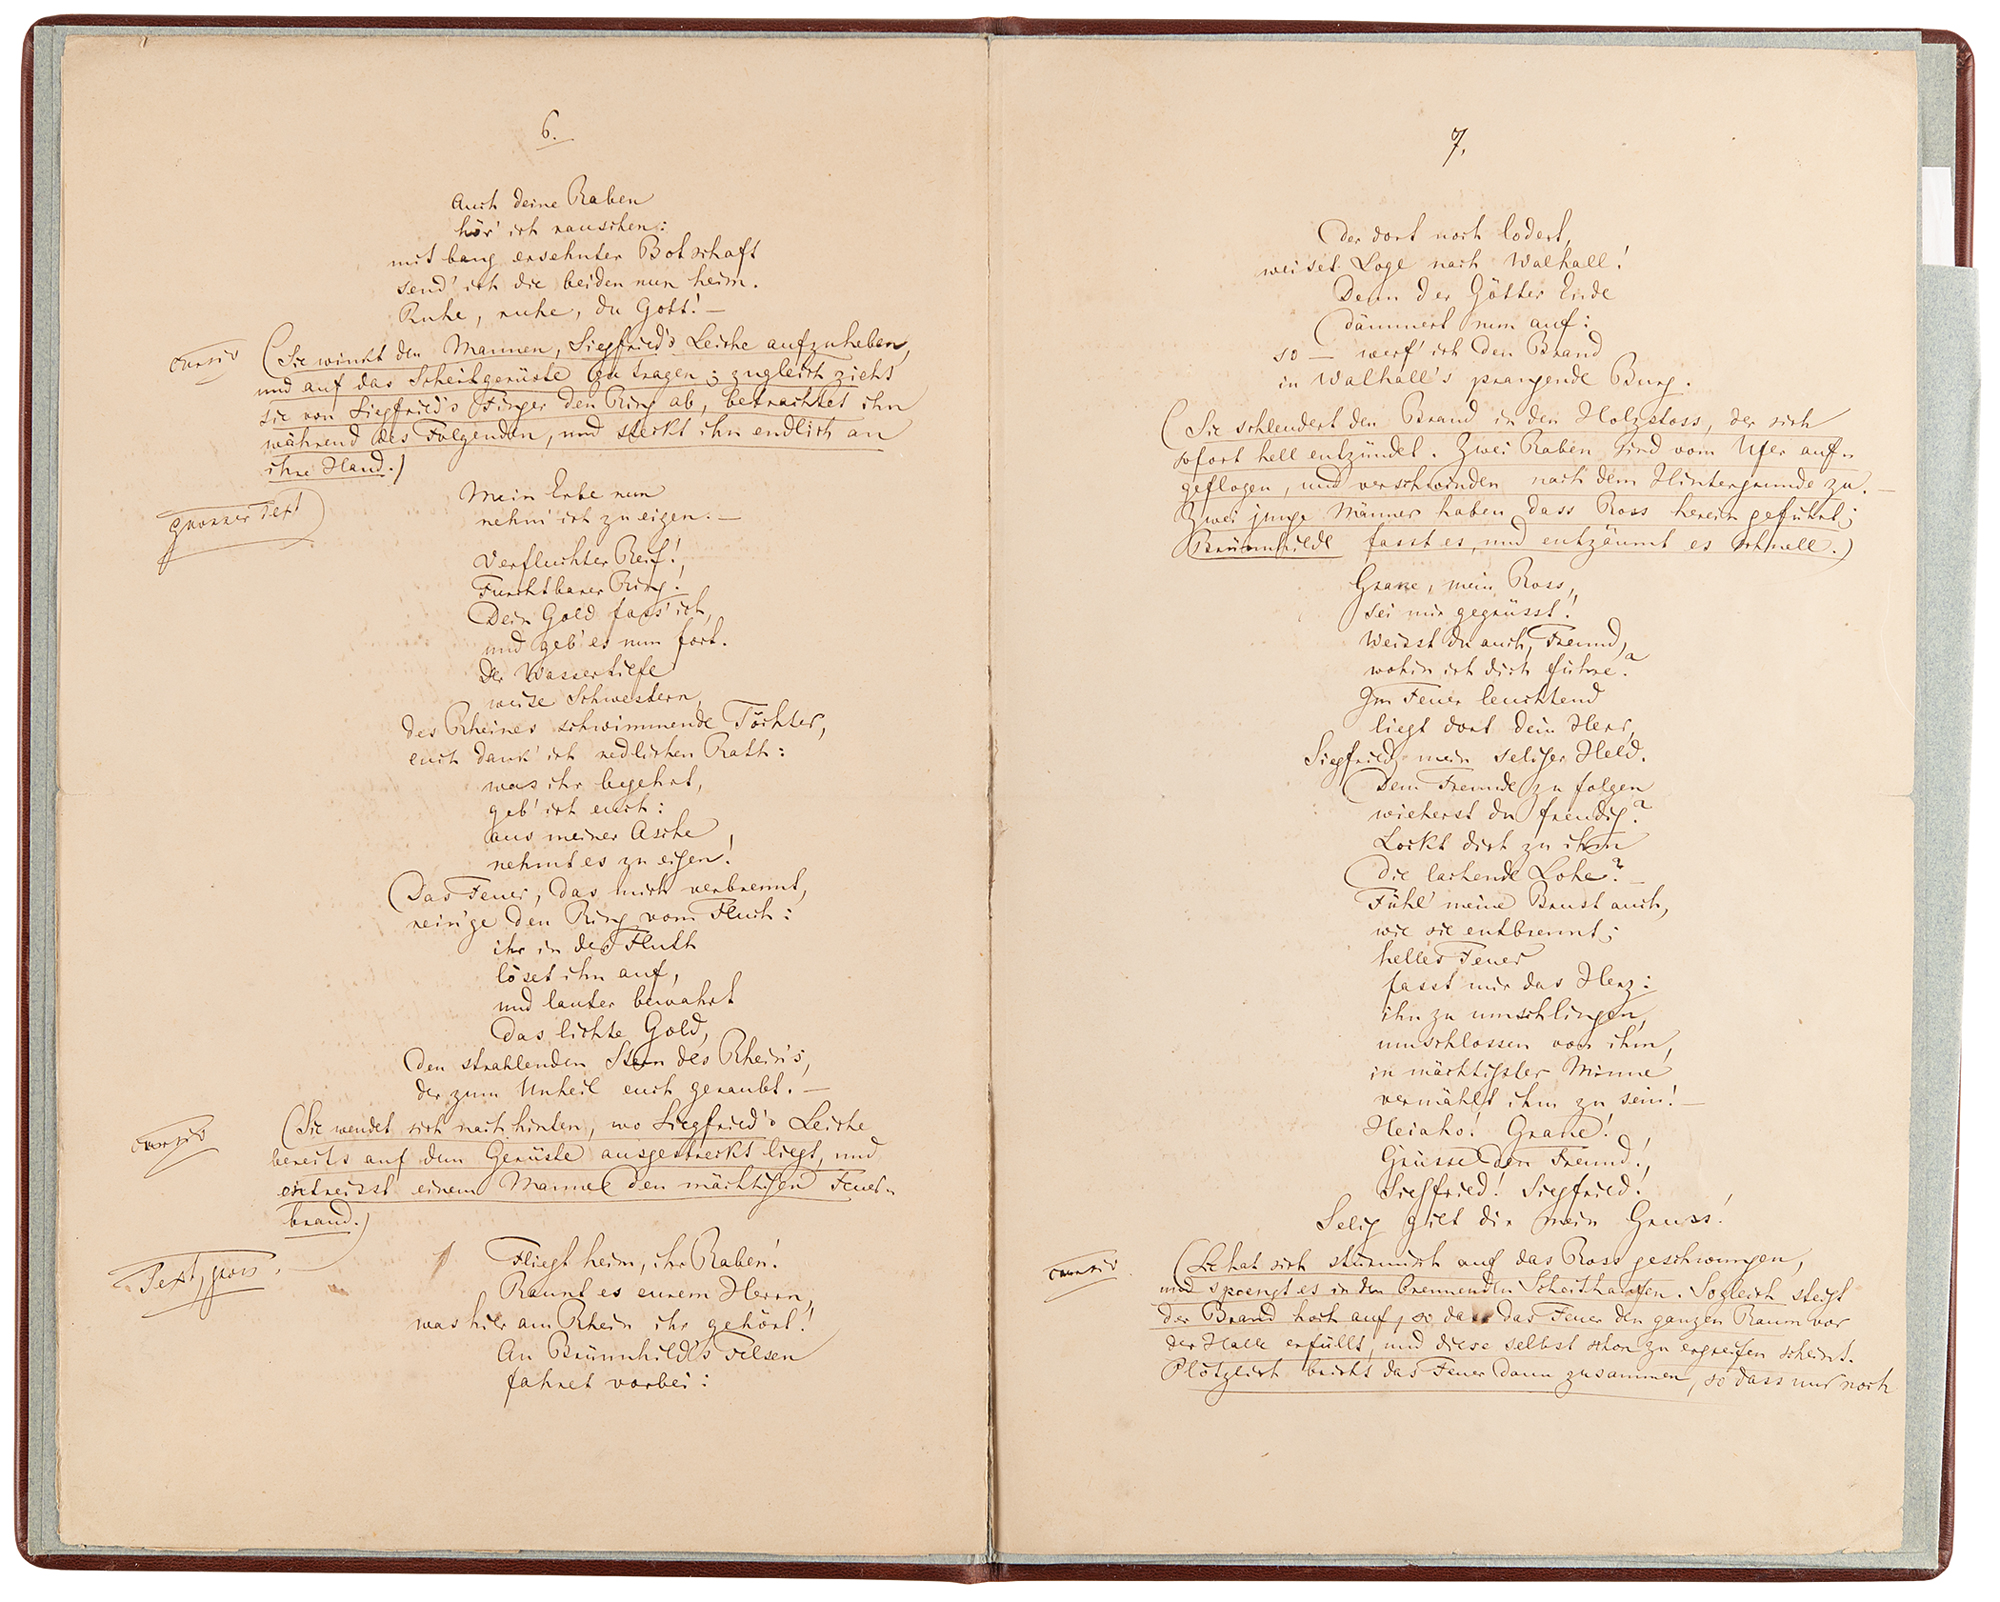 6.
Auch deine Raben
hör' ich rauschen:
mit bang ersehnter Botschaft
send' ich die beiden nun heim.
Ruhe, ruhe, du Gott! —
cursiv
(Sie winkt den Mannen, Siegfried's Leiche aufzuheben,
und auf das Scheitgerüste zu tragen; zugleich zieht
sie von Siegfried's Finger den Ring ab, betrachtet ihn
während des Folgenden, und steckt ihn endlich an
ihre Hand.)
grosser Text
Mein Erbe nun
nehm' ich zu eigen. —
Verfluchter Reif!
Furchtbarer Ring!
Dein Gold fass' ich,
und geb' es nun fort.
Der Wassertiefe
weise Schwestern,
des Rheines schwimmende Töchter,
euch dank' ich redlichen Rath:
was ihr begehrt,
geb' ich euch:
aus meiner Asche
nehmt es zu eigen!
Das Feuer, das mich verbrennt,
rein'ge den Ring vom Fluch:
ihr in der Fluth
löset ihn auf,
und lauter bewahrt
das lichte Gold,
den strahlenden Stern des Rhein's,
der zum Unheil euch geraubt. —
cursiv
(Sie wendet sich nach hinten, wo Siegfried's Leiche
bereits auf dem Gerüste ausgestreckt liegt, und
entreisst einem Manne den mächtigen Feuer-
brand.)
Text, gross.
Fliegt heim, ihr Raben!
Raunt es eurem Herrn,
was hier am Rhein ihr gehört!
An Brünnhild's Felsen
fahret vorbei:
7.
Der dort noch lodert,
weiset Loge nach Walhall!
Denn der Götter Ende
dämmert nun auf:
so — werf' ich den Brand
in Walhall's prangende Burg.
(Sie schleudert den Brand in den Holzstoss, der sich
sofort hell entzündet. Zwei Raben sind vom Ufer auf-
geflogen, und verschwinden nach dem Hintergrunde zu. —
Zwei junge Männer haben dass Ross herein geführt;
Brünnhilde fasst es, und entzäumt es schnell.)
Grane, mein Ross,
sei mir gegrüsst!
Weisst du auch, Freund,
wohin ich dich führe?
Im Feuer leuchtend
liegt dort dein Herr,
Siegfried, mein seliger Held.
Dem Freunde zu folgen
wieherst du freudig?
Lockt dich zu ihm
die lachende Lohe? —
Fühl' meine Brust auch,
wie sie entbrennt;
helles Feuer
fasst mir das Herz:
ihn zu umschlingen,
umschlossen von ihm,
in mächtigster Minne
vermählt ihm zu sein! —
Heiaho! Grane!
Grüsse den Freund!
Siegfried! Siegfried!
Selig gilt dir mein Gruss!
cursiv.
(Sie hat sich stürmisch auf das Ross geschwungen,
und sprengt es in den brennenden Scheithaufen. Sogleich steigt
der Brand hoch auf, so dass das Feuer den ganzen Raum vor
der Halle erfüllt, und diese selbst schon zu ergreifen scheint.
Plötzlich bricht das Feuer dann zusammen, so dass nur noch